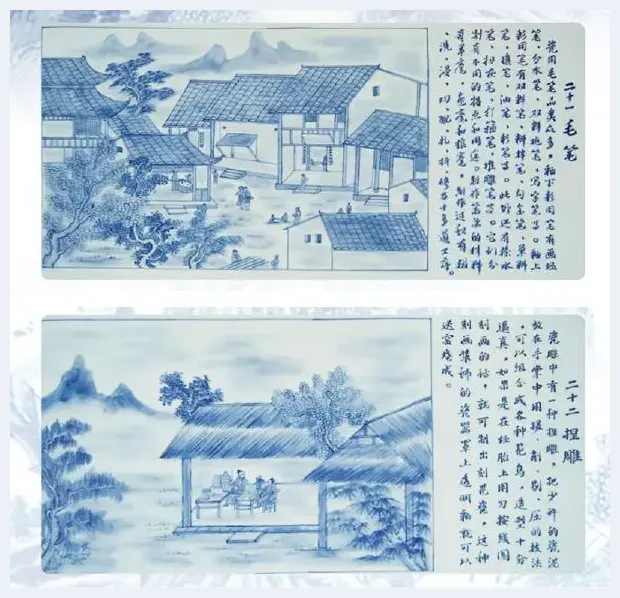 二十一 毛笔
瓷用毛笔品类众多，釉下彩用笔有画坯
笔、分水笔、双料拖笔、写字笔等。釉上
彩用笔有双料笔、笔、勾金笔、草料
笔、填笔、油笔、彩笔等。此外还有水
笔、扫灰笔、打箍笔、堆雕笔等。它们分
别有不同的特点和用途。制作笔类的材料
有羊毫、毫和狼毫，制作过程有
、洗、浸、切、配、扎、择、修等十多道工序。
二十二 捏雕
瓷雕中有一种捏雕，把少许的瓷泥
放在手掌中用搓、削、剔、压的技法
，可以组合成各种花鸟，造型十分
逼真，如果是在胎上用刀按线图
刻画的话，就可制出刻花瓷，这种
刻画装饰的瓷器罩上透明釉就可以
送窑烧成。